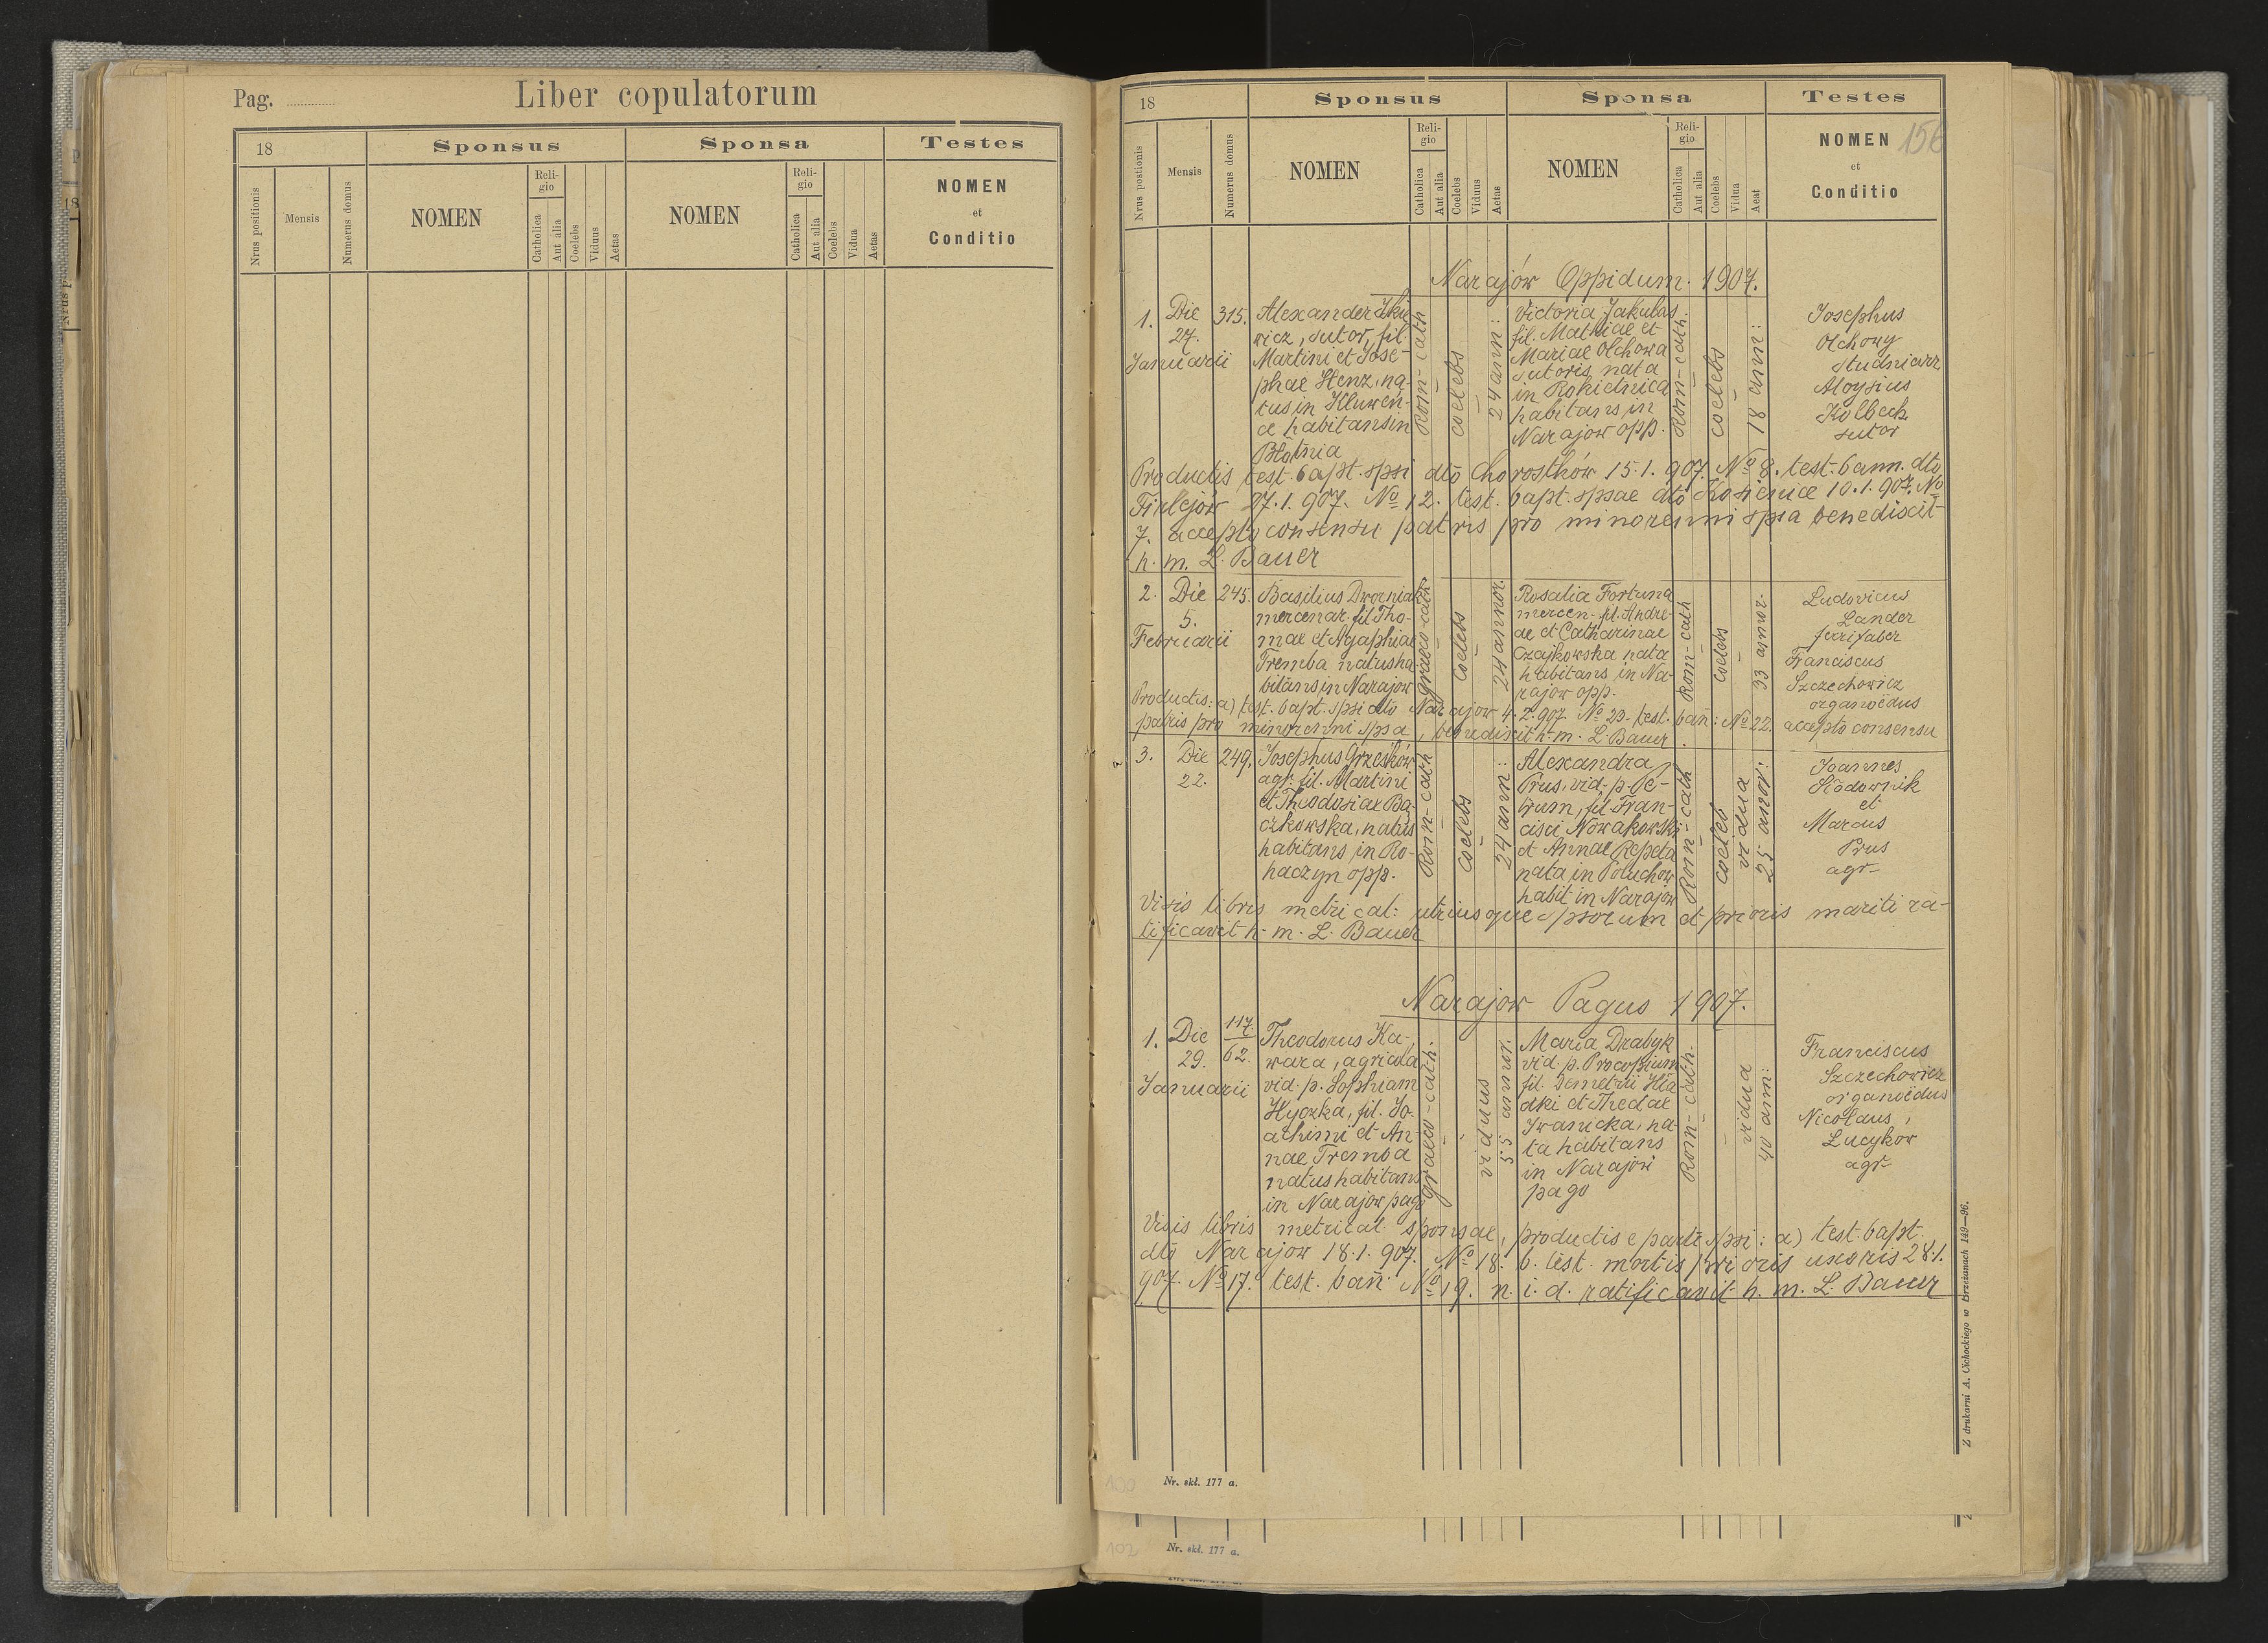 Pag.
Liber copulatorum
18
Sponsus
Sponsa
Testes
Nrus positionis
Mensis
Numerus domus
NOMEN
Religio
Catholica
Aut alia
Coelebs
Viduus
Aetas
NOMEN
Religio
Catholica
Aut alia
Coelebs
Vidua
Aetas
NOMEN
et
Conditio
18
Sponsus
Sponsa
Testes
Nrus postionis
Mensis
Numerus domus
NOMEN
Reli-
gio
Catholica
Aut alia
Coelebs
Viduus
Aetas
NOMEN
Reli-
gio
Catholica
Aut alia
Coelebs
Vidua
Aeat
NOMEN
et
Conditio
156
Narajów Oppidum. 1907.
1.
Die
27.
Januarii
315.
Alexander
wicz, sutor, fil.
Martini et Jose-
phae Henz, na-
tus in
habitans in
Błotnia
Rom-cath
coelebs
24 ann:
Victoria Jakubas
fil. Mathiae et
Mariae Olchowa
sutoris, nata
in Rokietnica
habitans in
Narajow opp.
Rom-cath.
coelebs
18 ann:
Josephus
Olchowy
studniarz
Aloysius
Kolbeck
sutor
Productis, test. bapt. spsi dto Chorostków 15.1.907. No 8. test. bann. dto
Firlejów 27.1.907. No 12. test. bapt. spsae dto 10.1.907. No
7. accepto consensu patris pro minorenni spsa benedixit
h. m. L. Bauer
2.
Die
5.
Februarii
245.
Basilius Dworniak
mercenar. fil Tho-
mae et Agaphiae
Tremba natus ha-
bitans in Narajow
graeco-cath
coelebs
24 annor.
Rosalia Fortuna
mercen. fil. Andre-
ae et Catharinae
Czajkowska nata
habitans in Na-
rajow opp.
Rom-cath
coelebs
33 annor.
Ludovicus
Lander
ferrifaber
Franciscus
Szczechowicz
organoedus
Productis: a) test. bapt. spsi dto Narajow 4.2.907. No 20. test. bań: No 22. accepto consensu
patris pro minorenni spsa, benedixit h. m. L. Bauer.
3.
Die
22.
249.
Josephus Grzesków
agr. fil. Martini
et Theodosiae Ba-
czkowska, natus
habitans in Ro-
haczyn opp.
Rom-cath
coelebs
24 ann:
Alexandra
Prus, vid. p. Pe-
trum, fil. Fran-
cisci Nowakowski
et Annae Repeta
nata in Poluchow
habit in Narajow
Rom-cath
coelebs
vidua
25 anor:
Joannes
Słodownik
et
Marcus
Prus
agr-
Visis libris metrical: utriusque spsorum et prioris mariti ra-
tificavit h. m. L. Bauer
Narajow Pagus 1907.
1.
Die
29.
Januarii
117.
62.
Theodorus Ka-
wara, agricola
vid. p. Sophiam
Hyczka, fil. Jo-
athimi et An-
nae Tremba
natus habitans
in Narajow pago
graeco-cath.
viduus
55 annor.
Maria Drabyk
vid. p. Procopium
fil. Demetrii Hła-
dki et Theclae
Iwanicka, na-
ta habitans
in Narajow
pago
Rom-cath.
vidua
40 ann:
Franciscus
Szczechowicz
organoedus
Nicolaus,
Lucykow
agr-
Visis libris metrical sponsae, productis e parte spsi: a) test. bapt.
dto Narajow 18.1.907. No 18. b. test. mortis prioris uxoris 28.1.
907. No 17. test. bań. No 19. n. i. d. ratificavit h. m. L. Bauer
Z drukarni A. Cichockiego w Brzeżanach 149—96.
100
Nr. skł. 177 a.
102
Nr. skł. 177 a.